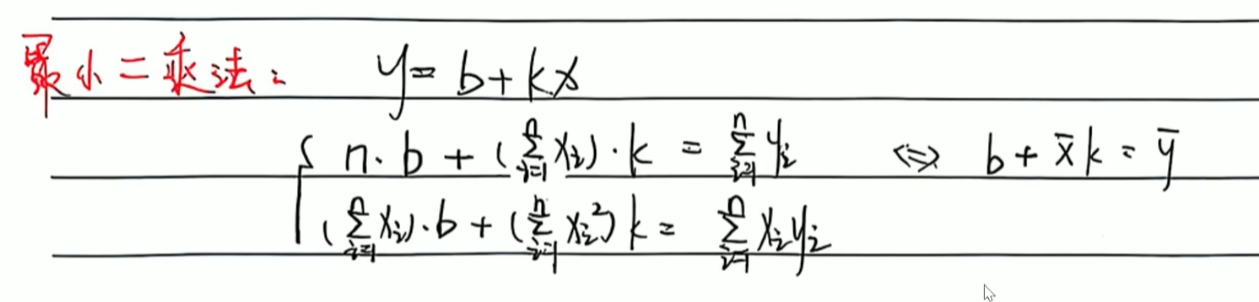 最小二乘法： y = b + kx
n·b + (∑_{i=1}^{n} x_i)·k = ∑_{i=1}^{n} y_i ⇔ b + x̄k = ȳ
(∑_{i=1}^{n} x_i)·b + (∑_{i=1}^{n} x_i²)k = ∑_{i=1}^{n} x_i y_i